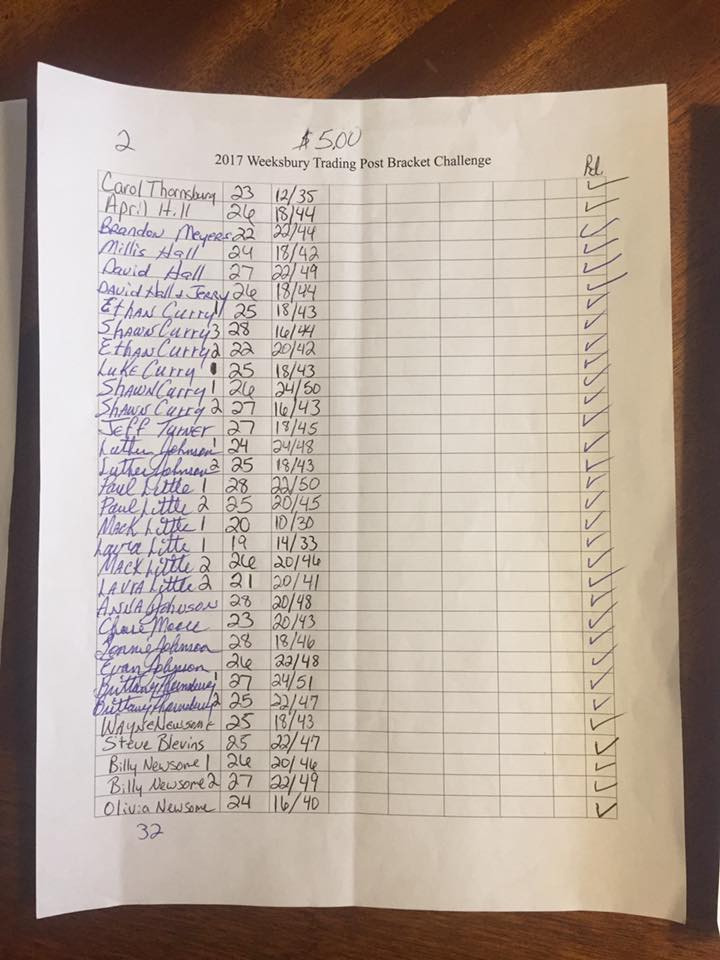 2 $5.00
2017 Weeksbury Trading Post Bracket Challenge Pd.
Carol Thornsbury 23 12/35
April Hill 26 18/44
Brandon Meyers 22 22/44
Millis Hall 24 18/42
David Hall 27 22/49
DAVID Hall & JERRY 26 18/44
EtHAN Curry 1 25 18/43
SHAWN Curry 3 28 16/44
EtHAN Curry 2 22 20/42
LUKE Curry 25 18/43
SHAWN Curry 1 26 24/50
SHAWN Curry 2 27 16/43
JEFF TURNER 27 18/45
Luther Johnson 1 24 24/48
Luther Johnson 2 25 18/43
Paul Little 1 28 22/50
Paul Little 2 25 20/45
MACK Little 1 20 10/30
Laura Little 1 19 14/33
MACK Little 2 26 20/46
LAURA Little 2 21 20/41
ANNA JOHNSON 28 20/48
Moore 23 20/43
Johnson 28 18/46
Evan Johnson 26 22/48
Brittany Thornsbury 1 27 24/51
Brittany Thornsbury 2 25 22/47
WAYNE NEWSOME 25 18/43
Steve Blevins 25 22/47
Billy Newsome 1 26 20/46
Billy Newsome 2 27 22/49
Olivia Newsome 24 16/40
32